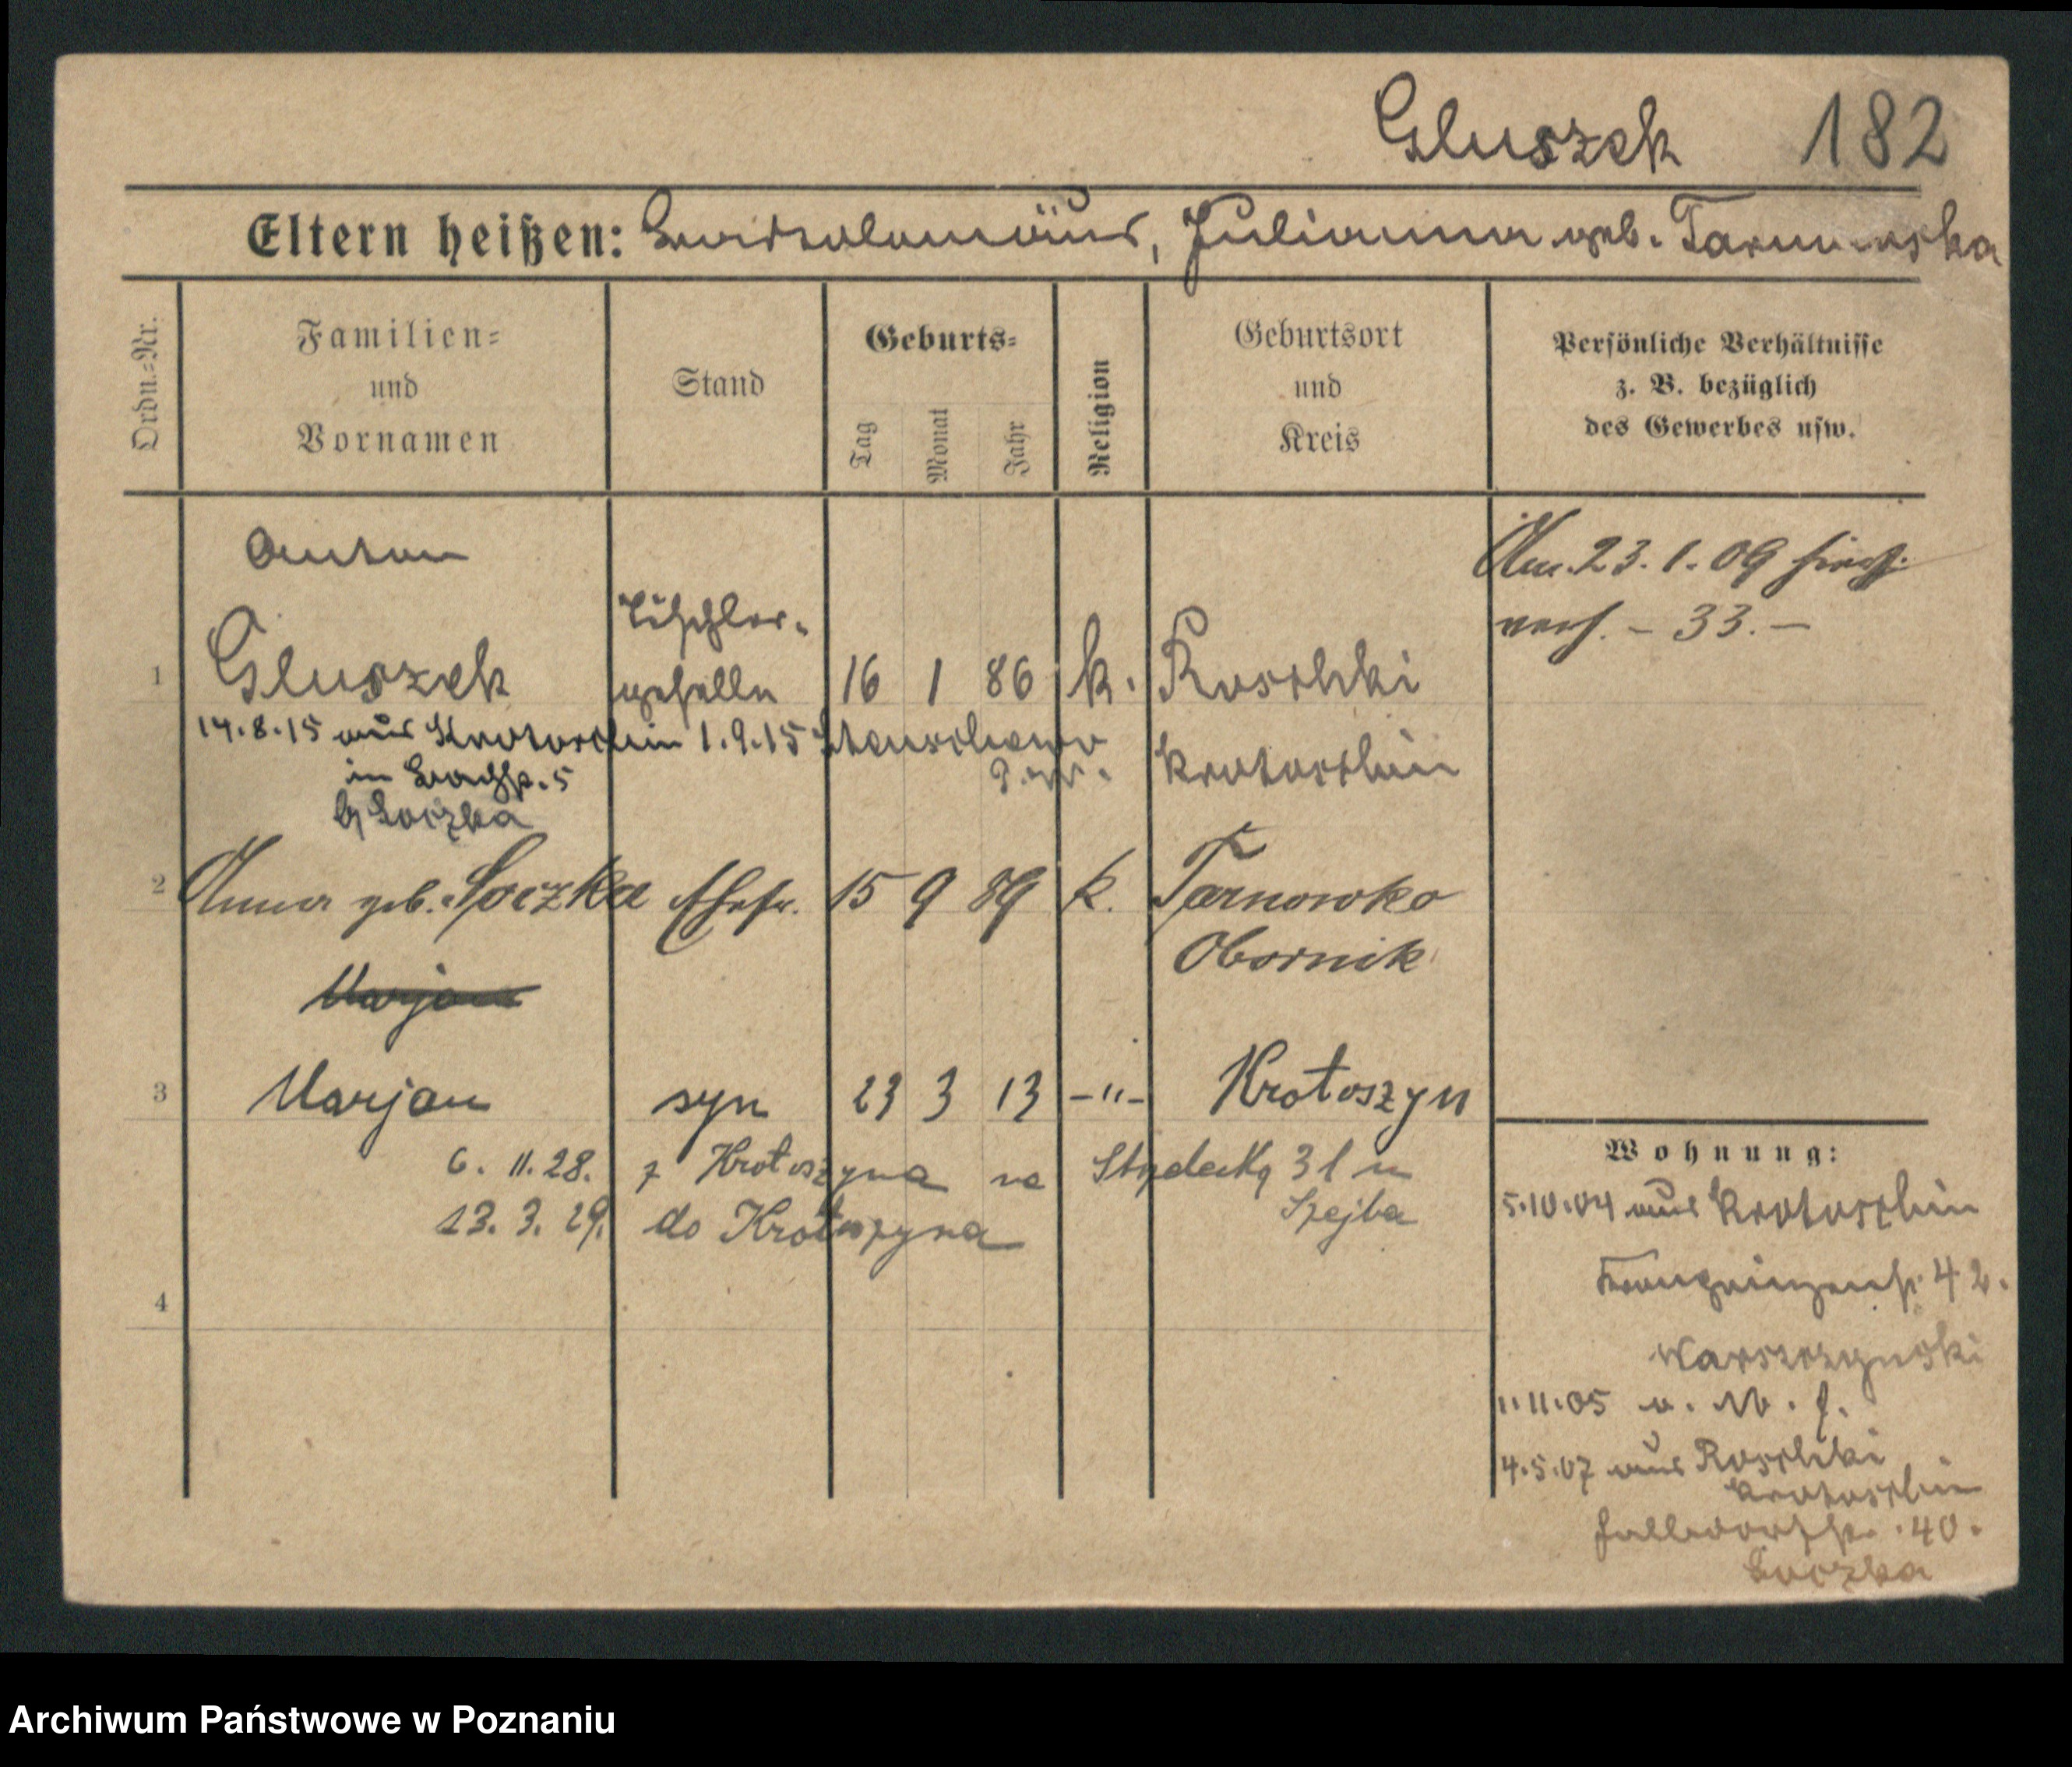 Gluszek 182
Eltern heißen: Bartolomäus, Julianna geb.
Ordn.-Nr.
Familien-
und
Vornamen
Stand
Geburts-
Tag
Monat
Jahr
Religion
Geburtsort
und
Kreis
Persönliche Verhältnisse
z. B. bezüglich
des Gewerbes usw.
Anton
Am 23.1.09
verh. - 33. -
Tischler-
1 Gluszek geselle 16 1 86 k. Roschki
14.8.15 aus Krotoschin 1.9.15
Krotoschin
in 5
b/ Loczka
2 Anna geb. Loczka Ehefr. 15 9 89 k. Tarnowko
Obornik
Marjan
3 Marjan syn 23 3 13 -"- Krotoszyn
6. 11. 28. z Krotoszyna na 31 u
Szejba
13. 3. 29. do Krotoszyna
4
Wohnung:
5.10.04 aus Krotoschin
Kronprinzenstr. 42.
1.11.05
4.5.07 aus Roschki
Krotoschin
40.
Loczka
Archiwum Państwowe w Poznaniu